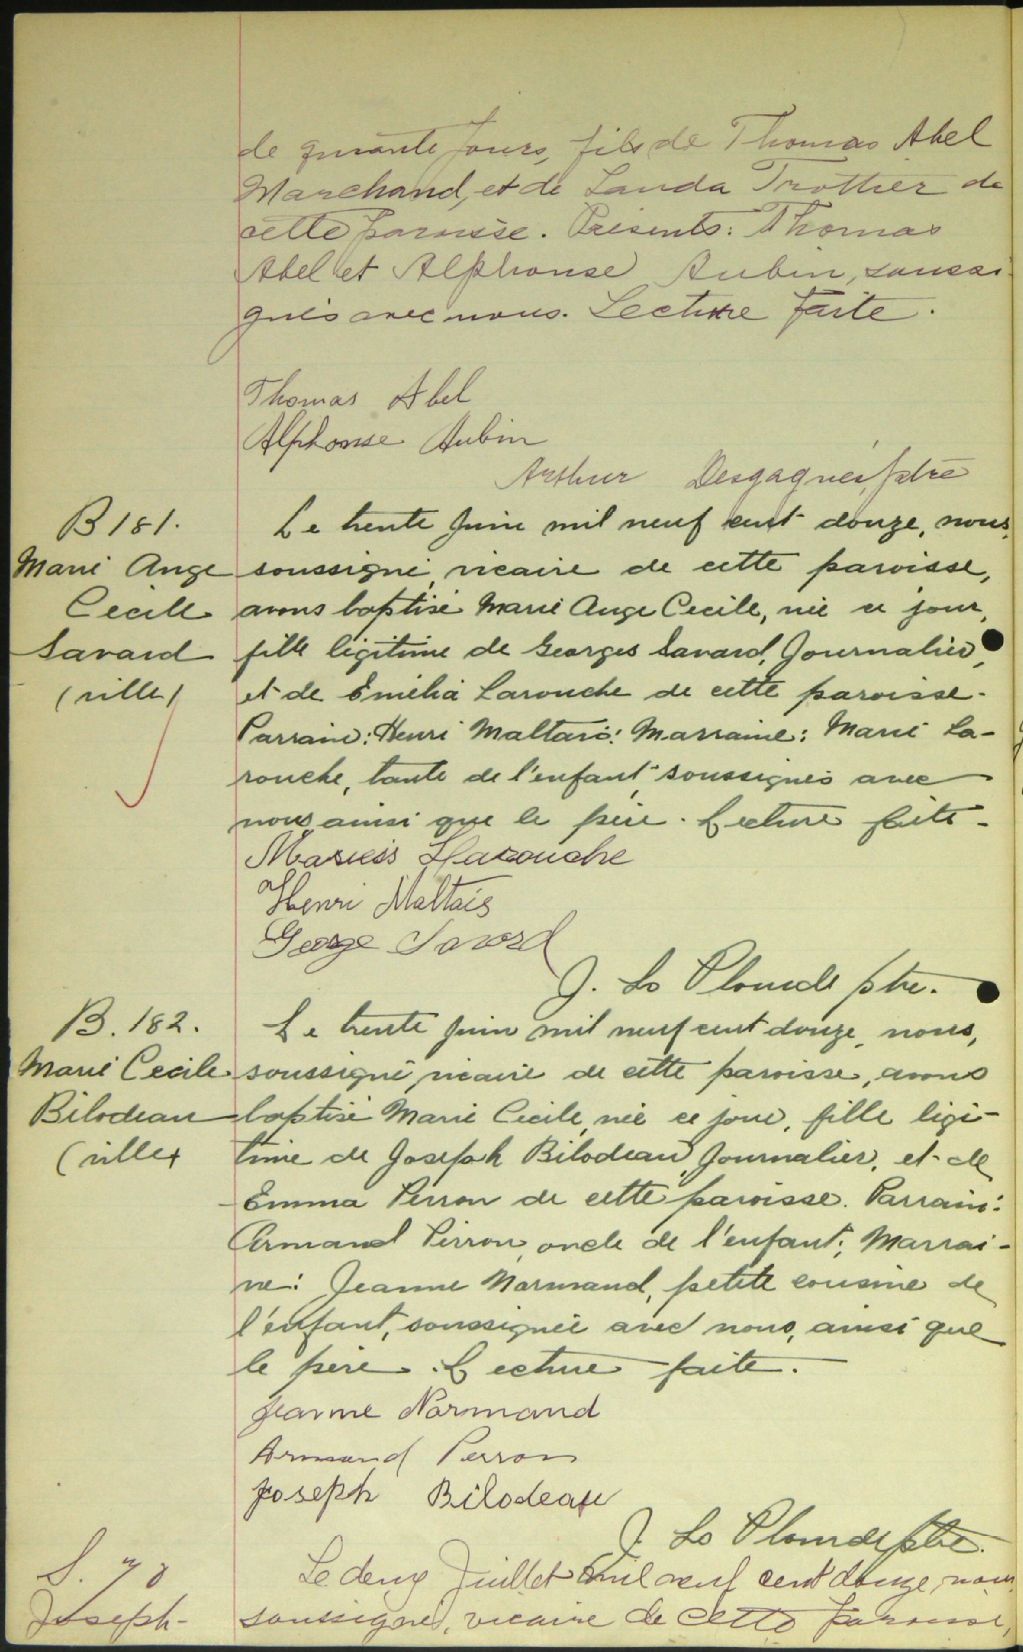 de quarante jours, fils de Thomas Abel
Marchand, et de Landa Trottier de
cette paroisse. Présents: Thomas
Abel et Alphonse Aubin, soussi-
gnés avec nous. Lecture faite.
Thomas Abel
Alphonse Aubin
Arthur Desgagnés, ptre
B 181.
Marie Ange
Cécile
Savard
(ville)
Le trente Juin mil neuf cent douze, nous,
soussigné, vicaire de cette paroisse,
avons baptisé Marie Ange Cecile, née ce jour,
fille légitime de Georges Savard, Journalier,
et de Emélia Larouche de cette paroisse.
Parrain: Henri Maltais: Marraine: Marie La-
rouche, tante de l'enfant, soussignés avec
nous, ainsi que le père. Lecture faite.
Larouche
Henri Maltais
George Savard
J. Ls Plourde ptre.
B. 182.
Marie Cecile
Bilodeau
(ville)
Le trente Juin mil neuf cent douze, nous,
soussigné vicaire de cette paroisse, avons
baptisé Marie Cécile, née ce jour, fille légi-
time de Joseph Bilodeau, Journalier, et de
Emma Perron de cette paroisse. Parrain:
Armand Perron, oncle de l'enfant; Marrai-
ne: Jeanne Normand, petite cousine de
l'enfant, soussignée avec nous, ainsi que
le père. Lecture faite.
Jeanne Normand
Armand Perron
Joseph Bilodeau
J. Ls Plourde ptre.
S. 70
Joseph-
Le deux Juillet mil neuf cent douze, nous
soussigné, vicaire de cette paroisse,